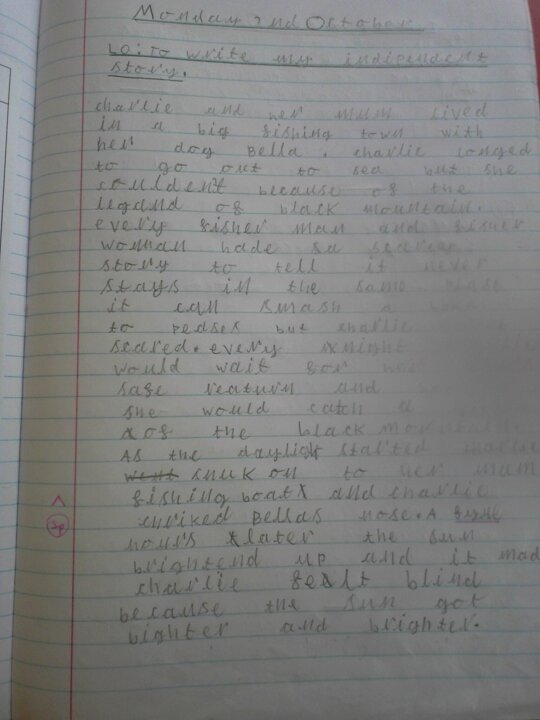 Monday 2nd October
LO: To write my indipendent
story.
charlie and her mum lived
in a big fishing town with
her dog Bella. charlie longed
to go out to sea but she
couldent because of the
legand of black mountain.
every fisher man and fisher
woman hade a
story to tell it never
stays in the same
it can smash a
to peases but charlie
scared. every night
would wait for
safe reaturn and
she would catch a
of the black mountain
As the daylight started charlie
went snuk on to her mum
fishing boat and charlie
Bellas nose. A
hours later the sun
brightend up and it mad
charlie feelt blind
because the sun got
bighter and brighter.
Sp